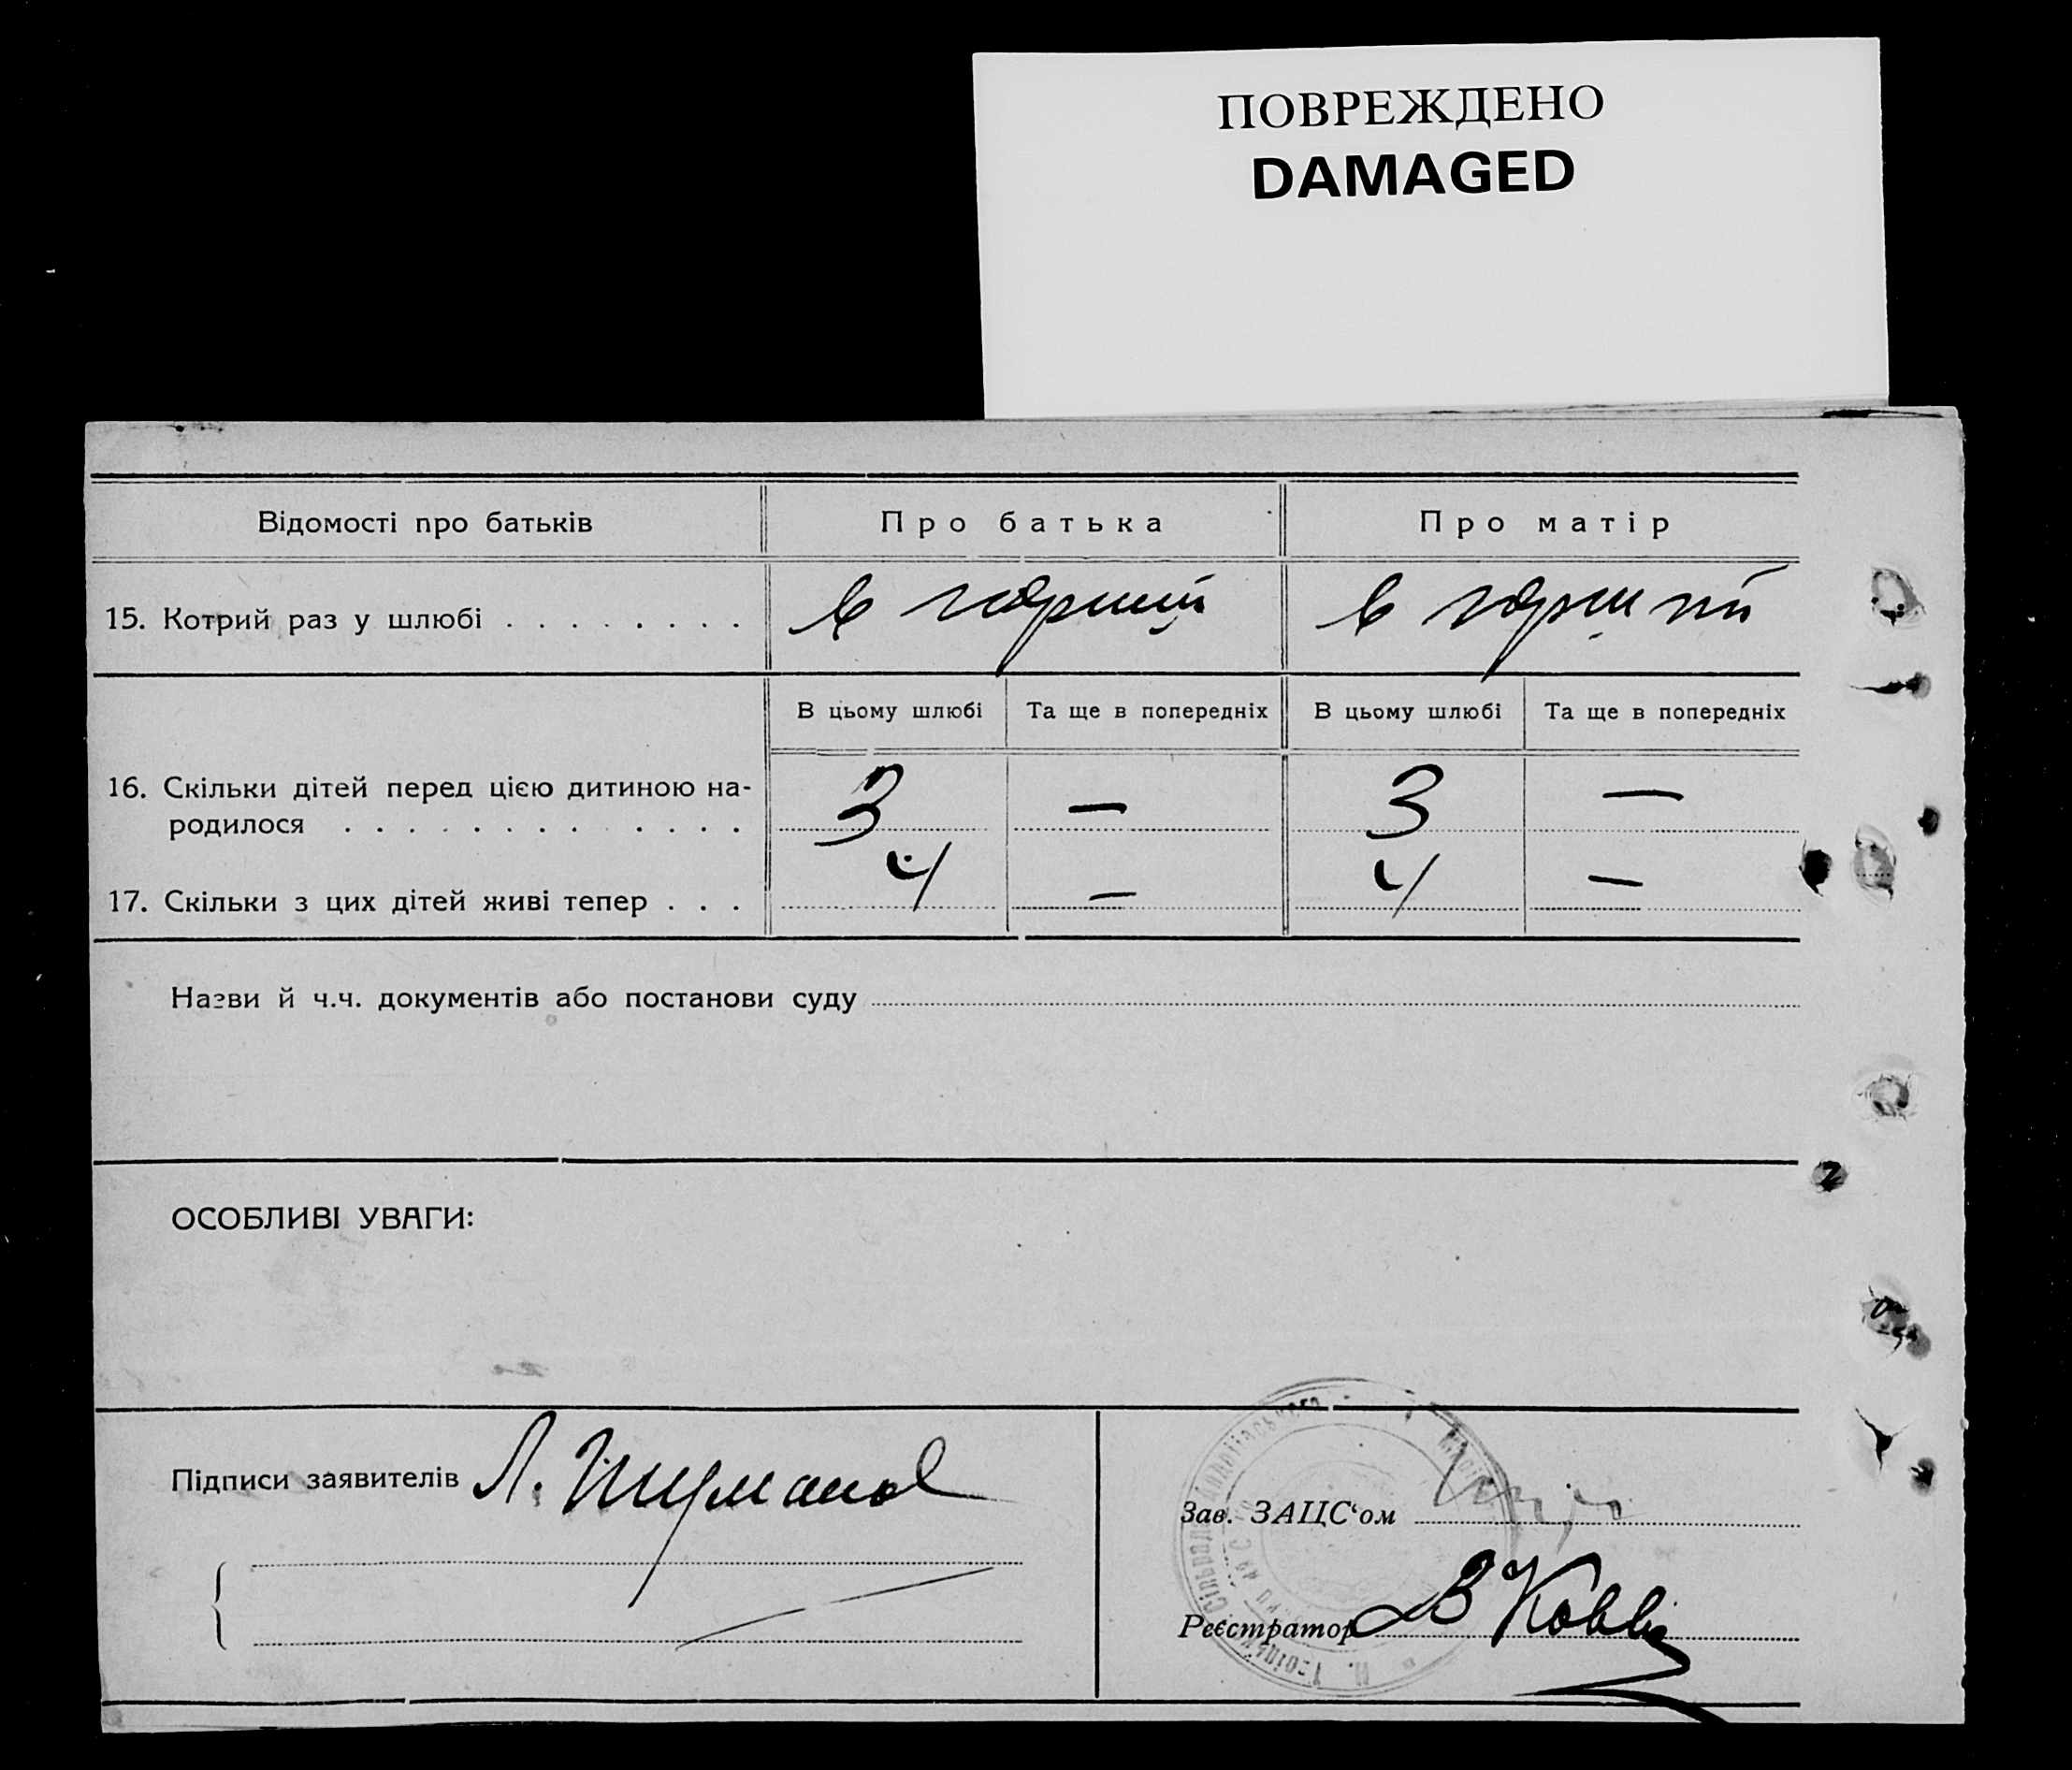 ПОВРЕЖДЕНО
DAMAGED
Відомості про батьків
Про батька
Про матір
15. Котрий раз у шлюбі . . . . . . . .
В цьому шлюбі
Та ще в попередніх
В цьому шлюбі
Та ще в попередніх
16. Скільки дітей перед цією дитиною на-
родилося . . . . . . . . . . . . .
3
—
3
—
17. Скільки з цих дітей живі тепер . . .
4
—
4
—
Назви й ч.ч. документів або постанови суду
ОСОБЛИВІ УВАГИ:
Підписи заявителів
Зав. ЗАЦС‘ом
Реєстратор